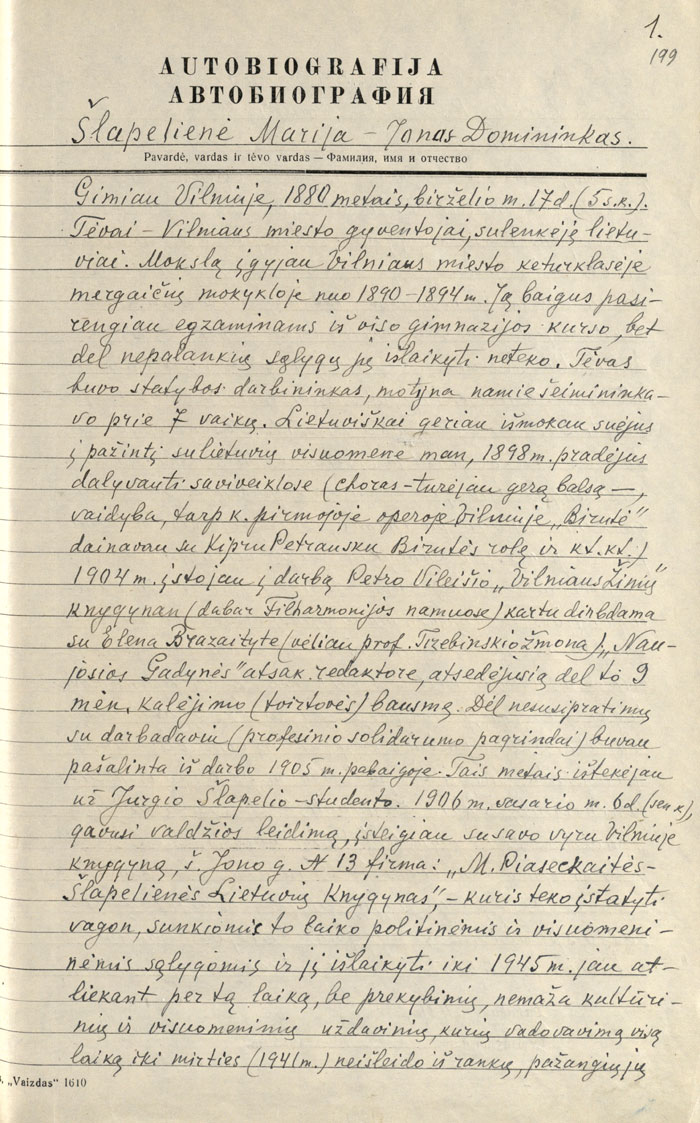 1.
199
AUTOBIOGRAFIJA
АВТОБИОГРАФИЯ
Šlapelienė Marija – Jonas Domininkas.
Pavardė, vardas ir tėvo vardas — Фамилия, имя и отчество
Gimiau Vilniuje, 1880 metais, birželio m. 17 d. (5 s.k.).
Tėvai – Vilniaus miesto gyventojai, sulenkėję lietu-
viai. Mokslą įgyjau Vilniaus miesto keturklasėje
mergaičių mokykloje nuo 1890–1894 m. Ją baigus pasi-
rengiau egzaminams iš viso gimnazijos kurso, bet
dėl nepalankių sąlygų jų išlaikyti neteko. Tėvas
buvo statybos darbininkas, motyna namie šeimininka-
vo prie 7 vaikų. Lietuviškai geriau išmokau suėjus
į pažintį su lietuvių visuomene man, 1898 m. pradėjus
dalyvauti saviveiklose (choras – turėjau gerą balsą —,
vaidyba, tarp k. pirmojoje operoje Vilniuje „Birutė"
dainavau su Kipru Petrausku Birutės rolę ir kt. kt.)
1904 m. įstojau į darbą Petro Vileišio „Vilniaus Žinių"
knygynan (dabar Filharmonijos namuose) kartu dirbdama
su Elena Brazaityte (vėliau prof. Trzebinskio žmona), „Nau-
josios Gadynės" atsak. redaktore, atsedėjusią dėl to 9
mėn. kalėjimo (tvirtovės) bausmę. Dėl nesusipratimų
su darbadaviu (profesinio solidarumo pagrindai) buvau
pašalinta iš darbo 1905 m. pabaigoje. Tais metais ištekėjau
už Jurgio Šlapelio – studento. 1906 m. vasario m. 6 d. (sen k),
gavusi valdžios leidimą, įsteigiau su savo vyru Vilniuje
knygyną, š. Jono g. № 13 firma: „M. Piaseckaitės-
Šlapelienės Lietuvių Knygynas", – kuris teko įstatyti
vagon, sunkiomis to laiko politinėmis ir visuomeni-
nėmis sąlygomis ir jį išlaikyti iki 1945 m. jau at-
liekant per tą laiką, be prekybinių, nemaža kultūri-
nių ir visuomeninių uždavinių, kurių vadovavimą visą
laiką iki mirties (1941 m.) neišleido iš rankų, pažangiųjų
„Vaizdas" 1610